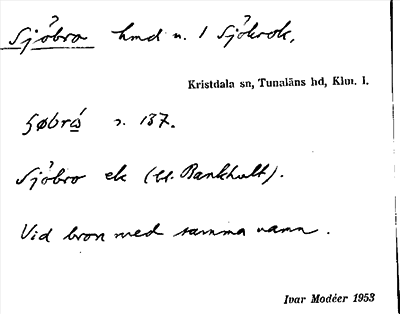 Sjöbro hmd n. 1 Sjökrok,
Kristdala sn, Tunaläns hd, Klm. l.
s. 137.
Sjöbro ek (Ll. Bankhult).
Vid bron med samma namn.
Ivar Modéer 1953